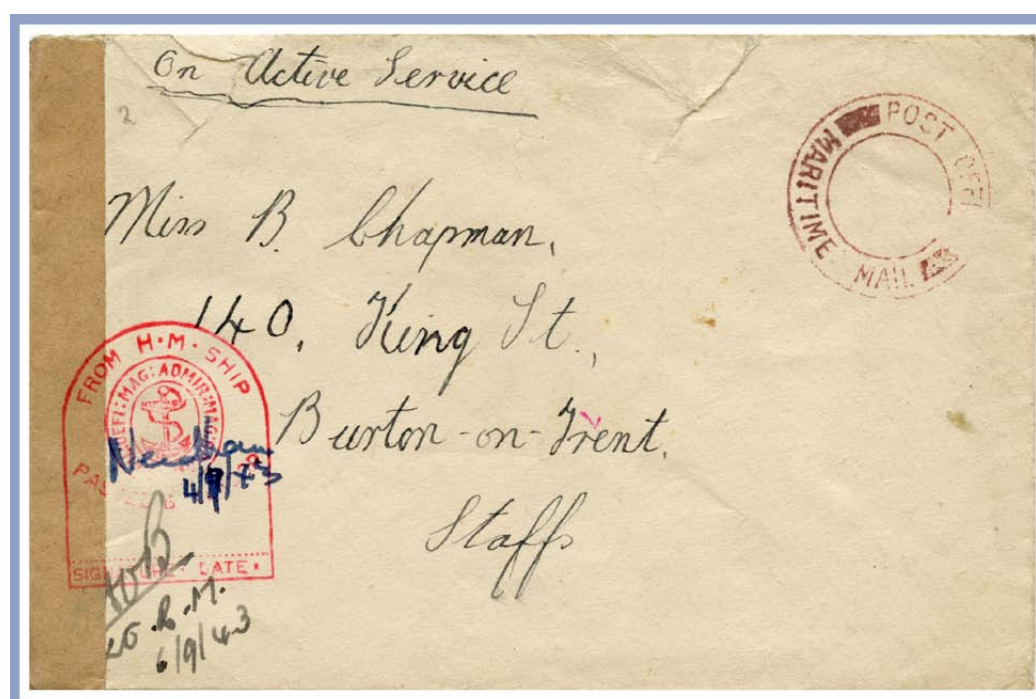 On Active Service
2
POST OFFI
MARITIME MAIL
Miss B. Chapman,
140, King St.,
Burton-on-Trent,
Staffs
FROM H·M·SHIP
MAG: ADMIR: MAG:
Needham
4/9/43
DATE
R.M.
6/9/43